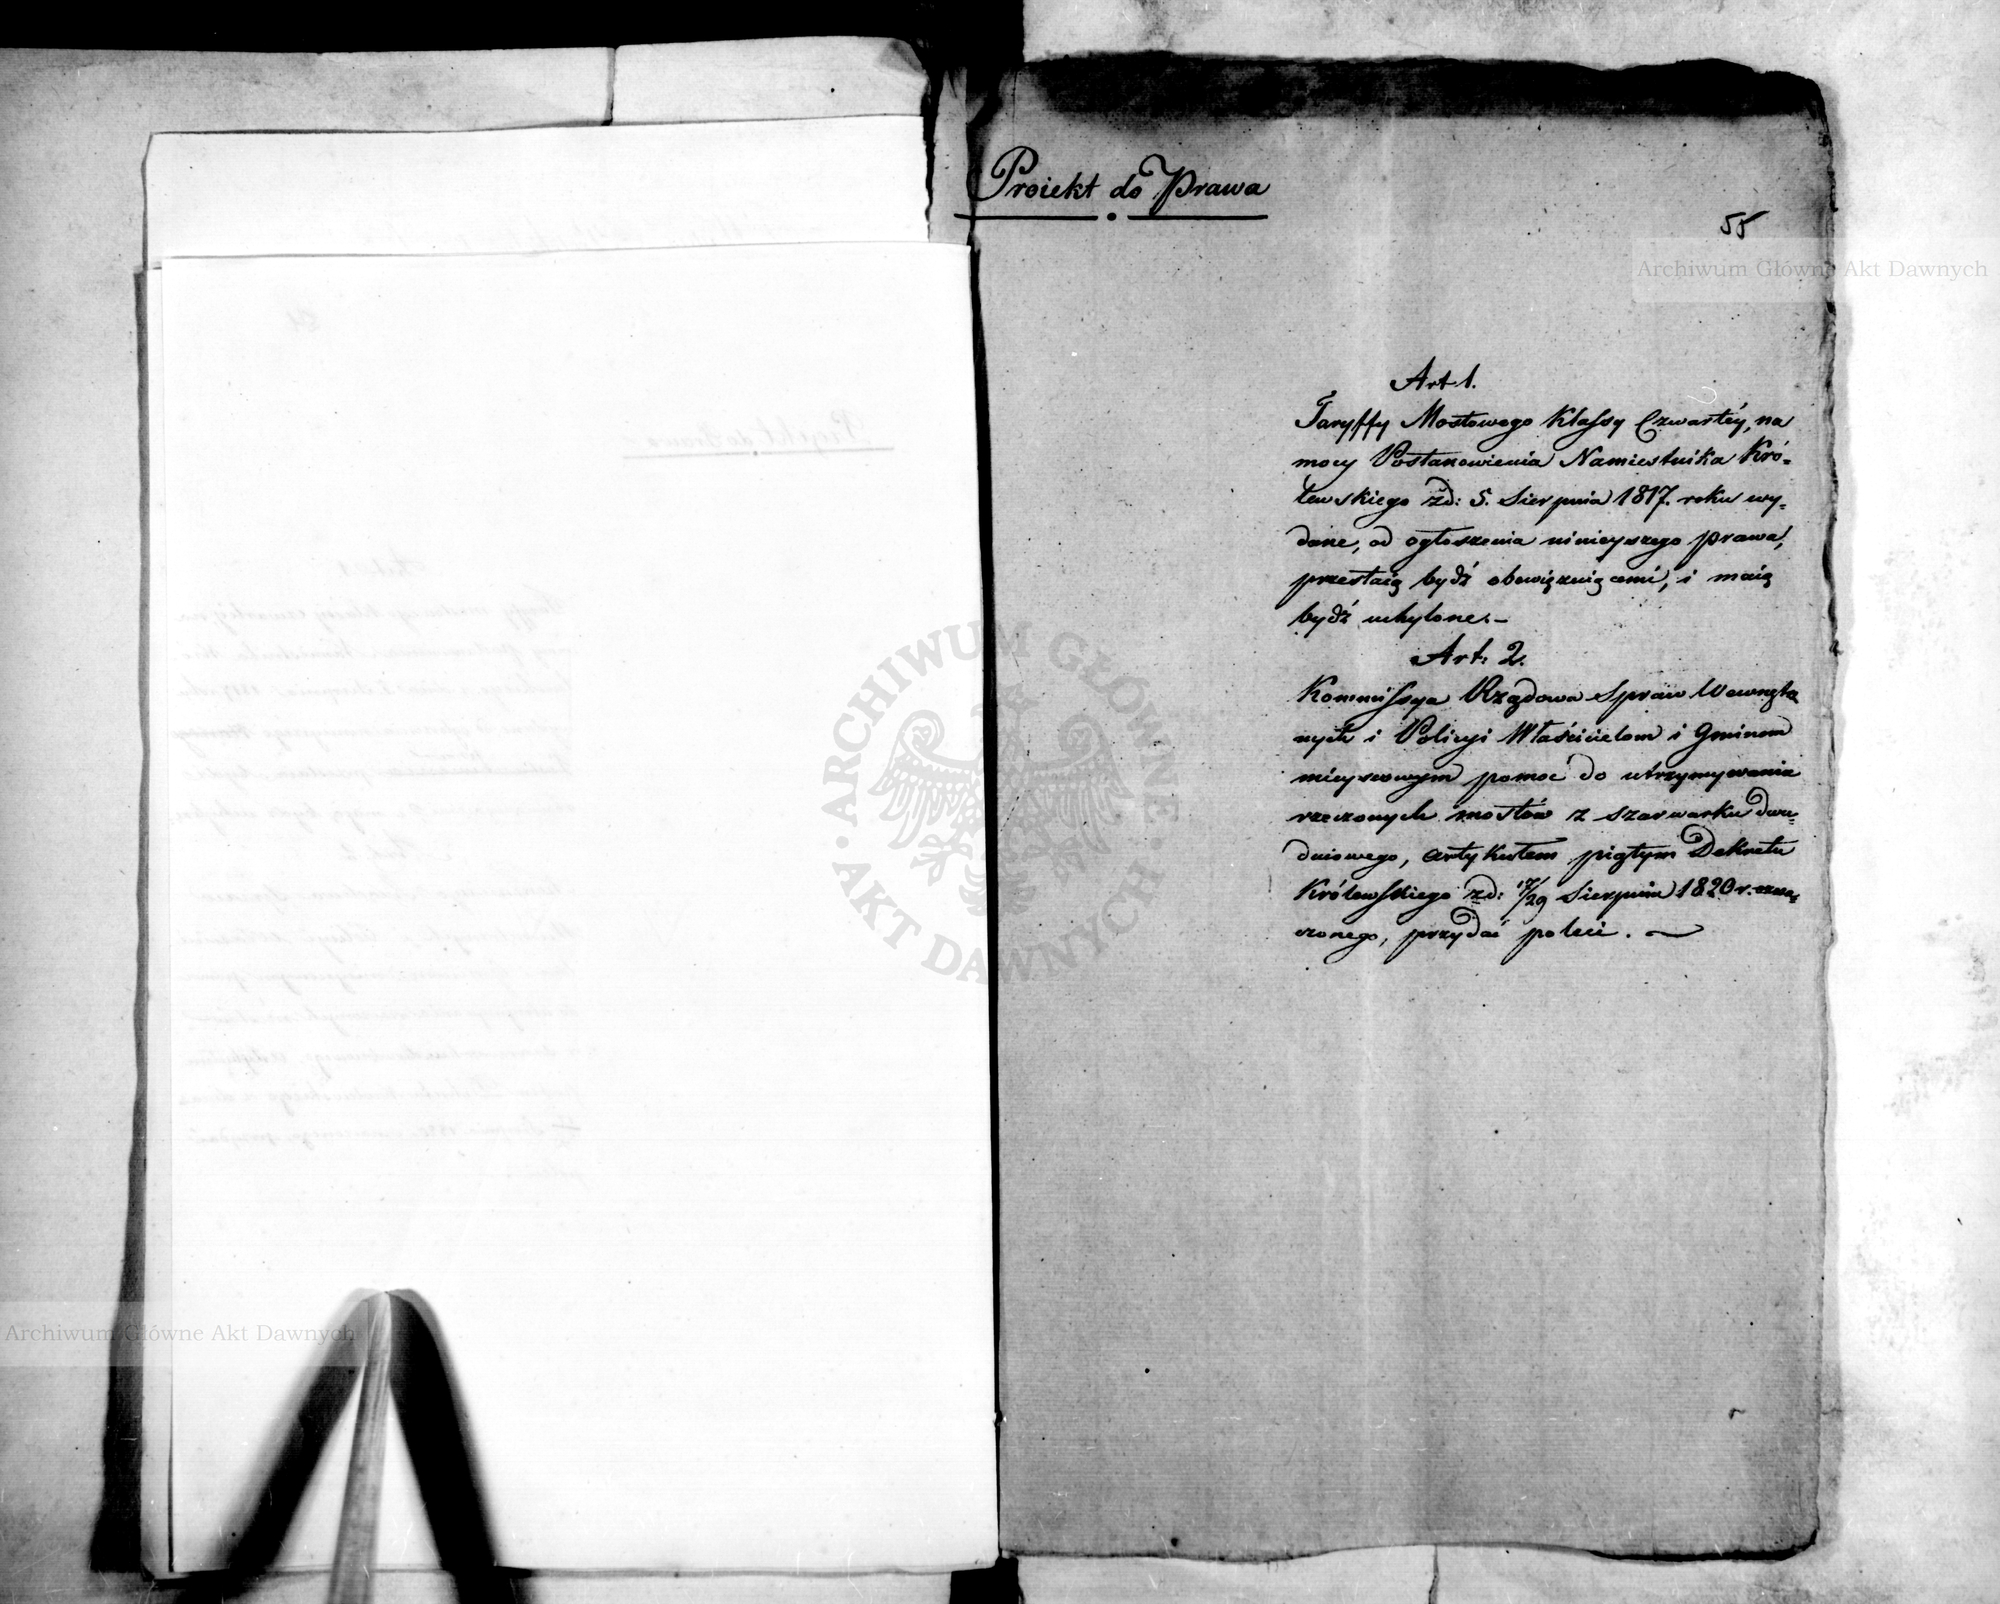 Proiekt do Prawa
55
Art 1.
Taryffy Mostowego Klassy Czwartéy, na
mocy Postanowienia Namiestnika Kró-
lewskiego zd: 5. Sierpnia 1817. roku wy-
dane, od ogłoszenia ninieyszego prawa,
przestaią bydź obowięzuiącemi, i maią
bydź uchylone.-
Art: 2.
Kommissya Rządowa Spraw Wewnętrz
nych i Policyi Właścicielom i Gminom
mieyscowym pomoc do utrzymywania
rzeczonych mostów z szarwarku dwu-
dniowego, artykułem piątym Dekretu
Królewskiego zd: 17/29 Sierpnia 1820 r. ozna-
czonego, przydać poleci.
Archiwum Główne Akt Dawnych
ARCHIWUM GŁÓWNE AKT DAWNYCH
Archiwum Główne Akt Dawnych